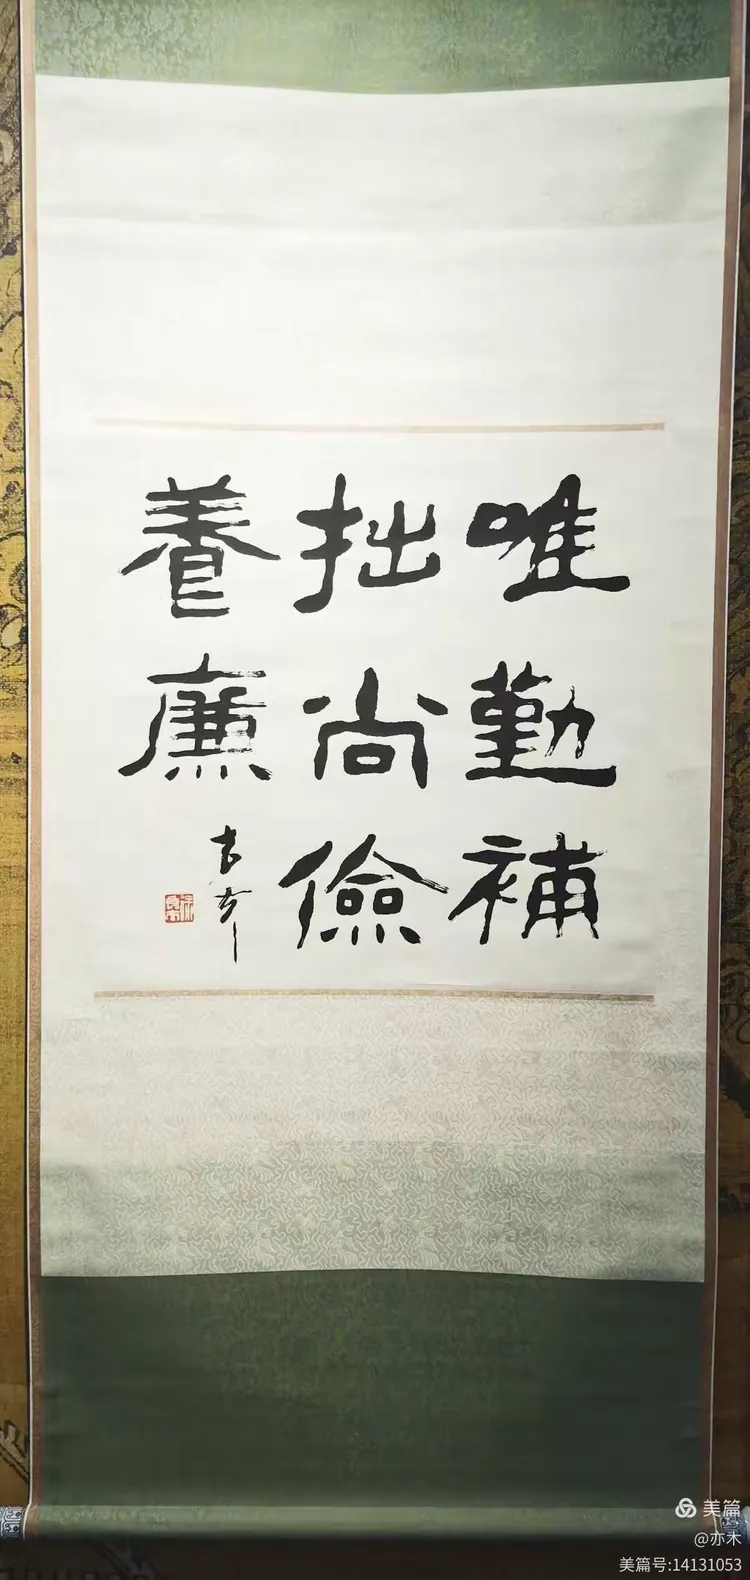 唯勤補
拙尚儉
養廉
美篇
@亦木
美篇号:14131053